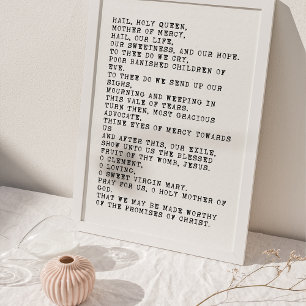 HAIL, HOLY QUEEN,
MOTHER OF MERCY,
HAIL, OUR LIFE,
OUR SWEETNESS, AND OUR HOPE.
TO THEE DO WE CRY,
POOR BANISHED CHILDREN OF
EVE.
TO THEE DO WE SEND UP OUR
SIGHS,
MOURNING AND WEEPING IN
THIS VALE OF TEARS.
TURN THEN, MOST GRACIOUS
ADVOCATE,
THINE EYES OF MERCY TOWARDS
US
AND AFTER THIS, OUR EXILE,
SHOW UNTO US THE BLESSED
FRUIT OF THY WOMB, JESUS.
O CLEMENT,
O LOVING,
O SWEET VIRGIN MARY.
PRAY FOR US, O HOLY MOTHER OF
GOD.
THAT WE MAY BE MADE WORTHY
OF THE PROMISES OF CHRIST.